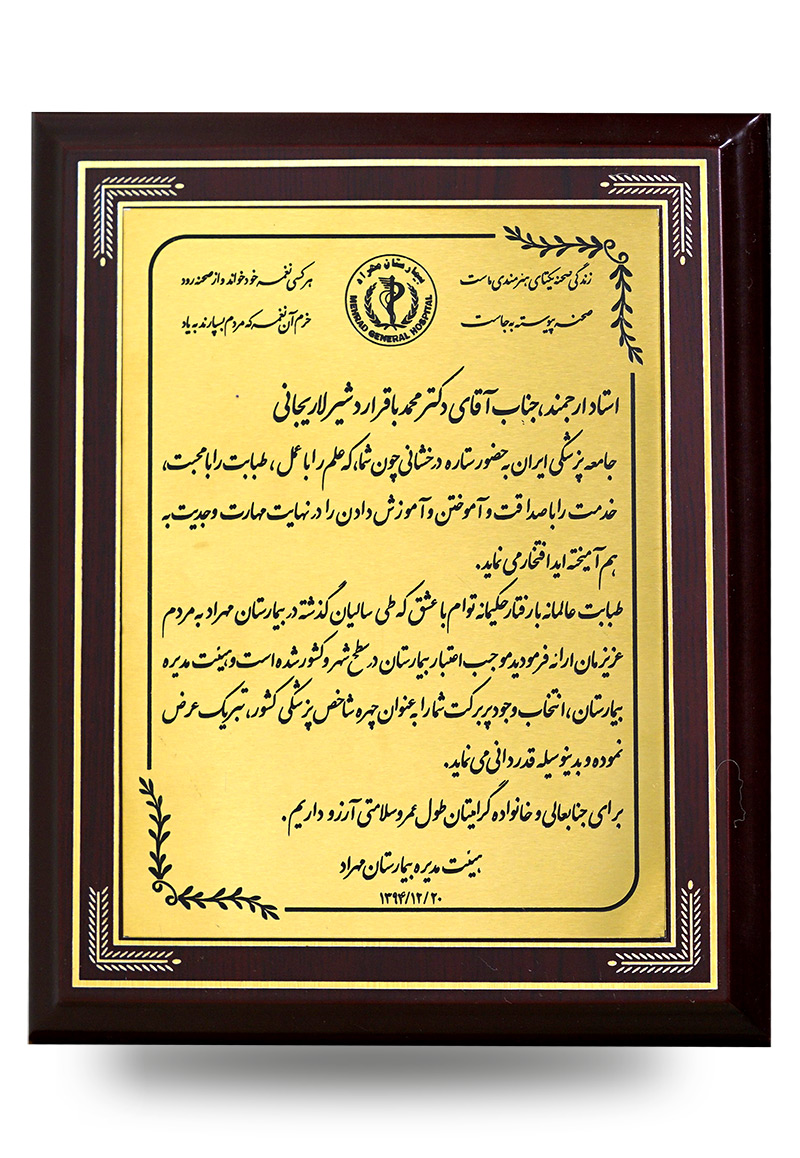 زندگی صحنه یکتای هنرمندی ماست
هرکسی نغمه خود خواند و از صحنه رود
صحنه پیوسته به جاست
خرم آن نغمه که مردم بسپارند به یاد
بیمارستان مهراد
MEHRAD GENERAL HOSPITAL
استاد ارجمند، جناب آقای دکتر محمد باقر اردشیر لاریجانی
جامعه پزشکی ایران به حضور ستاره درخشانی چون شما، که علم را با عمل، طبابت را با محبت،
خدمت را با صداقت و آموختن و آموزش دادن را در نهایت مهارت و جدیت به
هم آمیخته اید افتخار می نماید.
طبابت عالمانه با رفتار حکیمانه توام با عشق که طی سالیان گذشته در بیمارستان مهراد به مردم
عزیزمان ارائه فرمودید موجب اعتبار بیمارستان در سطح شهر و کشور شده است و هیئت مدیره
بیمارستان، انتخاب وجود پربرکت شما را به عنوان چهره شاخص پزشکی کشور، تبریک عرض
نموده و بدینوسیله قدردانی می نماید.
برای جنابعالی و خانواده گرامیتان طول عمر و سلامتی آرزو داریم.
هیئت مدیره بیمارستان مهراد
۱۳۹۴/۱۲/۲۰